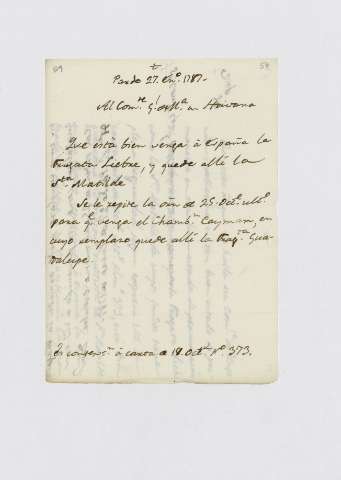 Pardo 27. En.º 1787.
Al Com.te G.l de M.a en Havana
Que está bien venga á España la
fragata Liebre, y quede allí la
S.ta Matilde
Se le repite la orn de 25. Oct.e ult.º
para q.e venga el Chamb.n Cayman, en
cuyo remplazo quede allí la frag.ta Gua-
dalupe.
Es contest.n á carta de 18 Oct.e n.º 373.